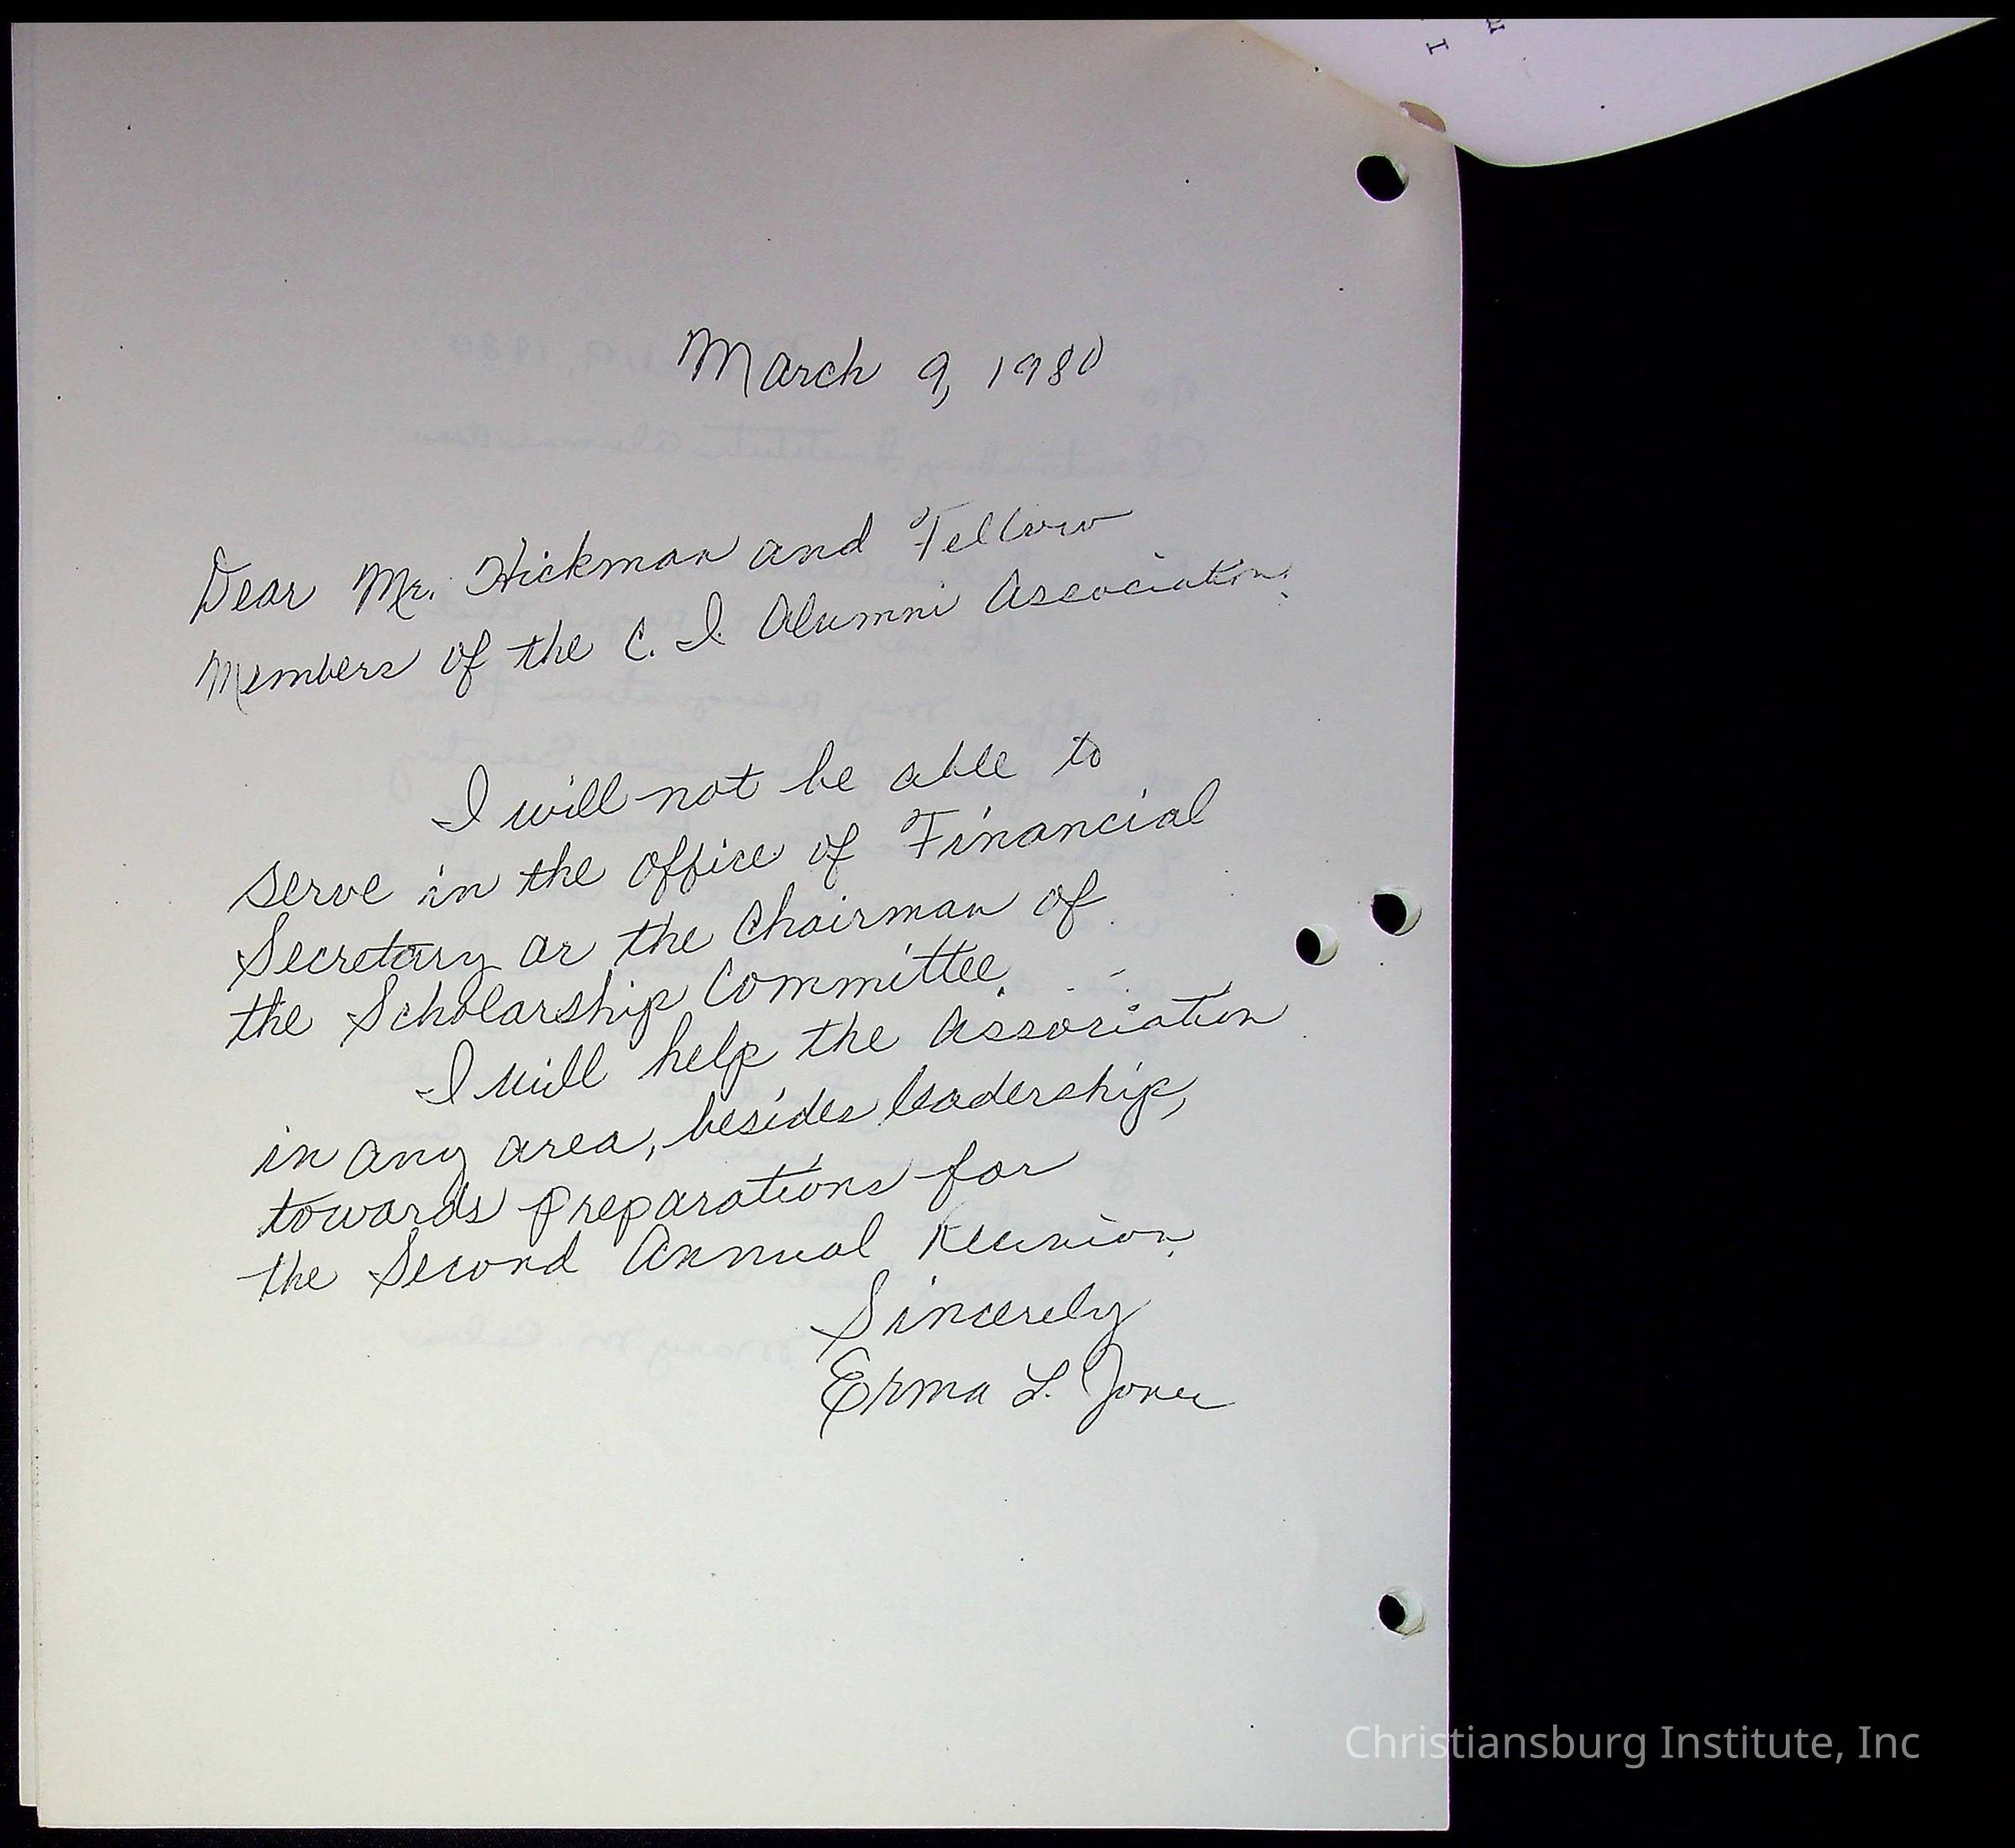 March 9, 1980
Dear Mr. Hickman and Fellow
Members of the C. I. Alumni Association:
I will not be able to
serve in the office of Financial
Secretary or the Chairman of
the Scholarship Committee.
I will help the Association
in any area, besides leadership,
towards preparations for
the Second Annual Reunion.
Sincerely
Erma L. Jones
Christiansburg Institute, Inc